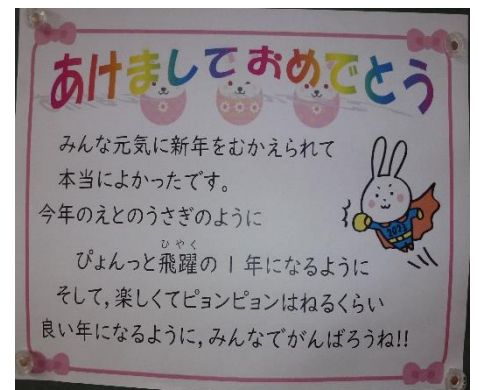 あけましておめでとう
みんな元気に新年をむかえられて
本当によかったです。
今年のえとのうさぎのように
ひやく
ぴょんっと飛躍の1年になるように
そして,楽しくてピョンピョンはねるくらい
良い年になるように,みんなでがんばろうね!!
2023